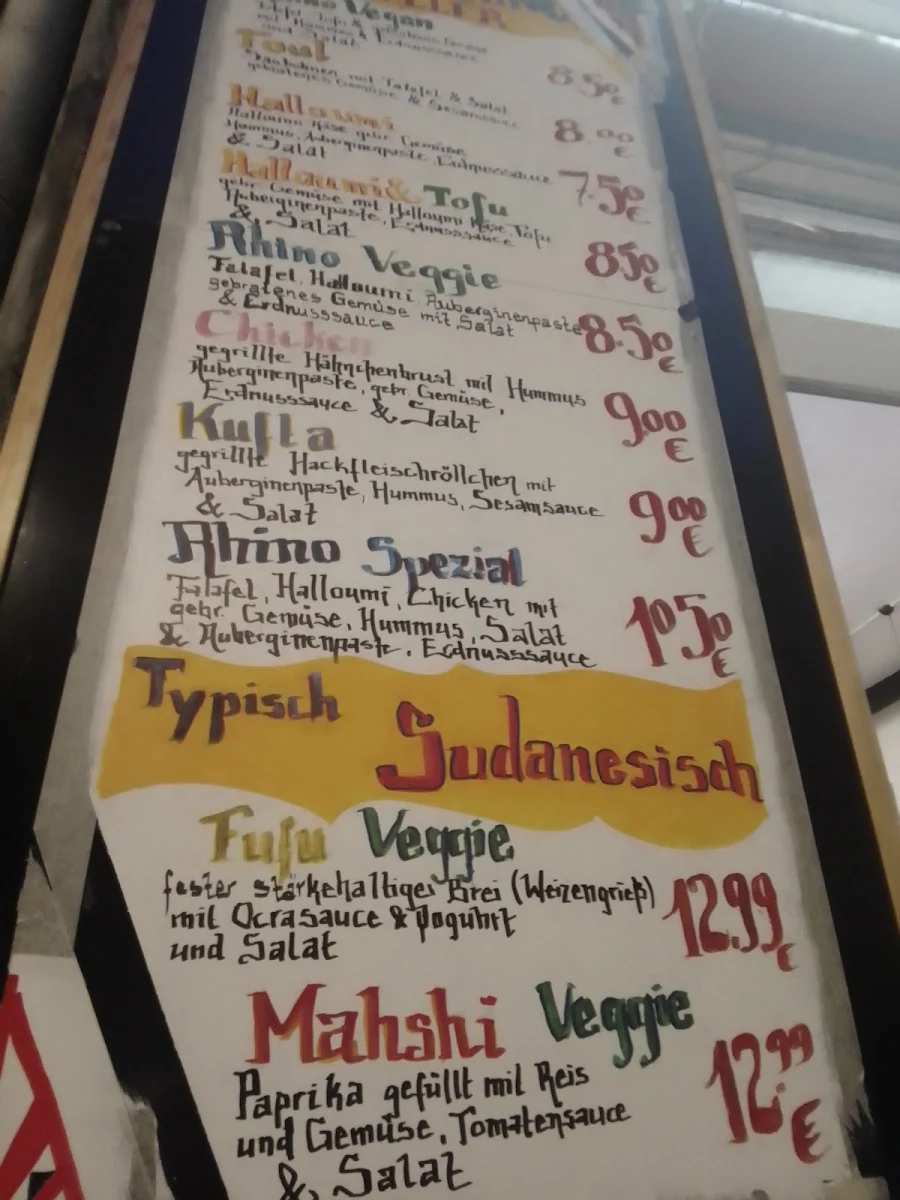 Vegan
Tofu & gebratenes Gemüse
mit Hummus & Erdnusssauce
und Salat
8.50 €
Foul
Saubohnen mit Falafel & Salat
gebratenes Gemüse & Sesamsauce
8.00 €
Halloumi
Halloumi Käse gebr Gemüse
Hummus, Auberginenpaste, Erdnusssauce
& Salat
7.50 €
Halloumi & Tofu
gebr Gemüse mit Halloumi Käse, Tofu
Auberginenpaste, Erdnusssauce
& Salat
8.50 €
Rhino Veggie
Falafel, Halloumi, Auberginenpaste
gebratenes Gemüse mit Salat
& Erdnusssauce
8.50 €
Chicken
gegrillte Hähnchenbrust mit Hummus
Auberginenpaste, gebr Gemüse,
Erdnusssauce & Salat
9.00 €
Kufta
gegrillte Hackfleischröllchen mit
Auberginenpaste, Hummus, Sesamsauce
& Salat
9.00 €
Rhino Spezial
Falafel, Halloumi, Chicken mit
gebr. Gemüse, Hummus, Salat
& Auberginenpaste, Erdnusssauce
10.50 €
Typisch
Sudanesisch
Fufu Veggie
fester stärkehaltiger Brei (Weizengrieß)
mit Ocrasauce & Jogührt
und Salat
12.99 €
Mahshi Veggie
Paprika gefüllt mit Reis
und Gemüse, Tomatensauce
& Salat
12.99 €